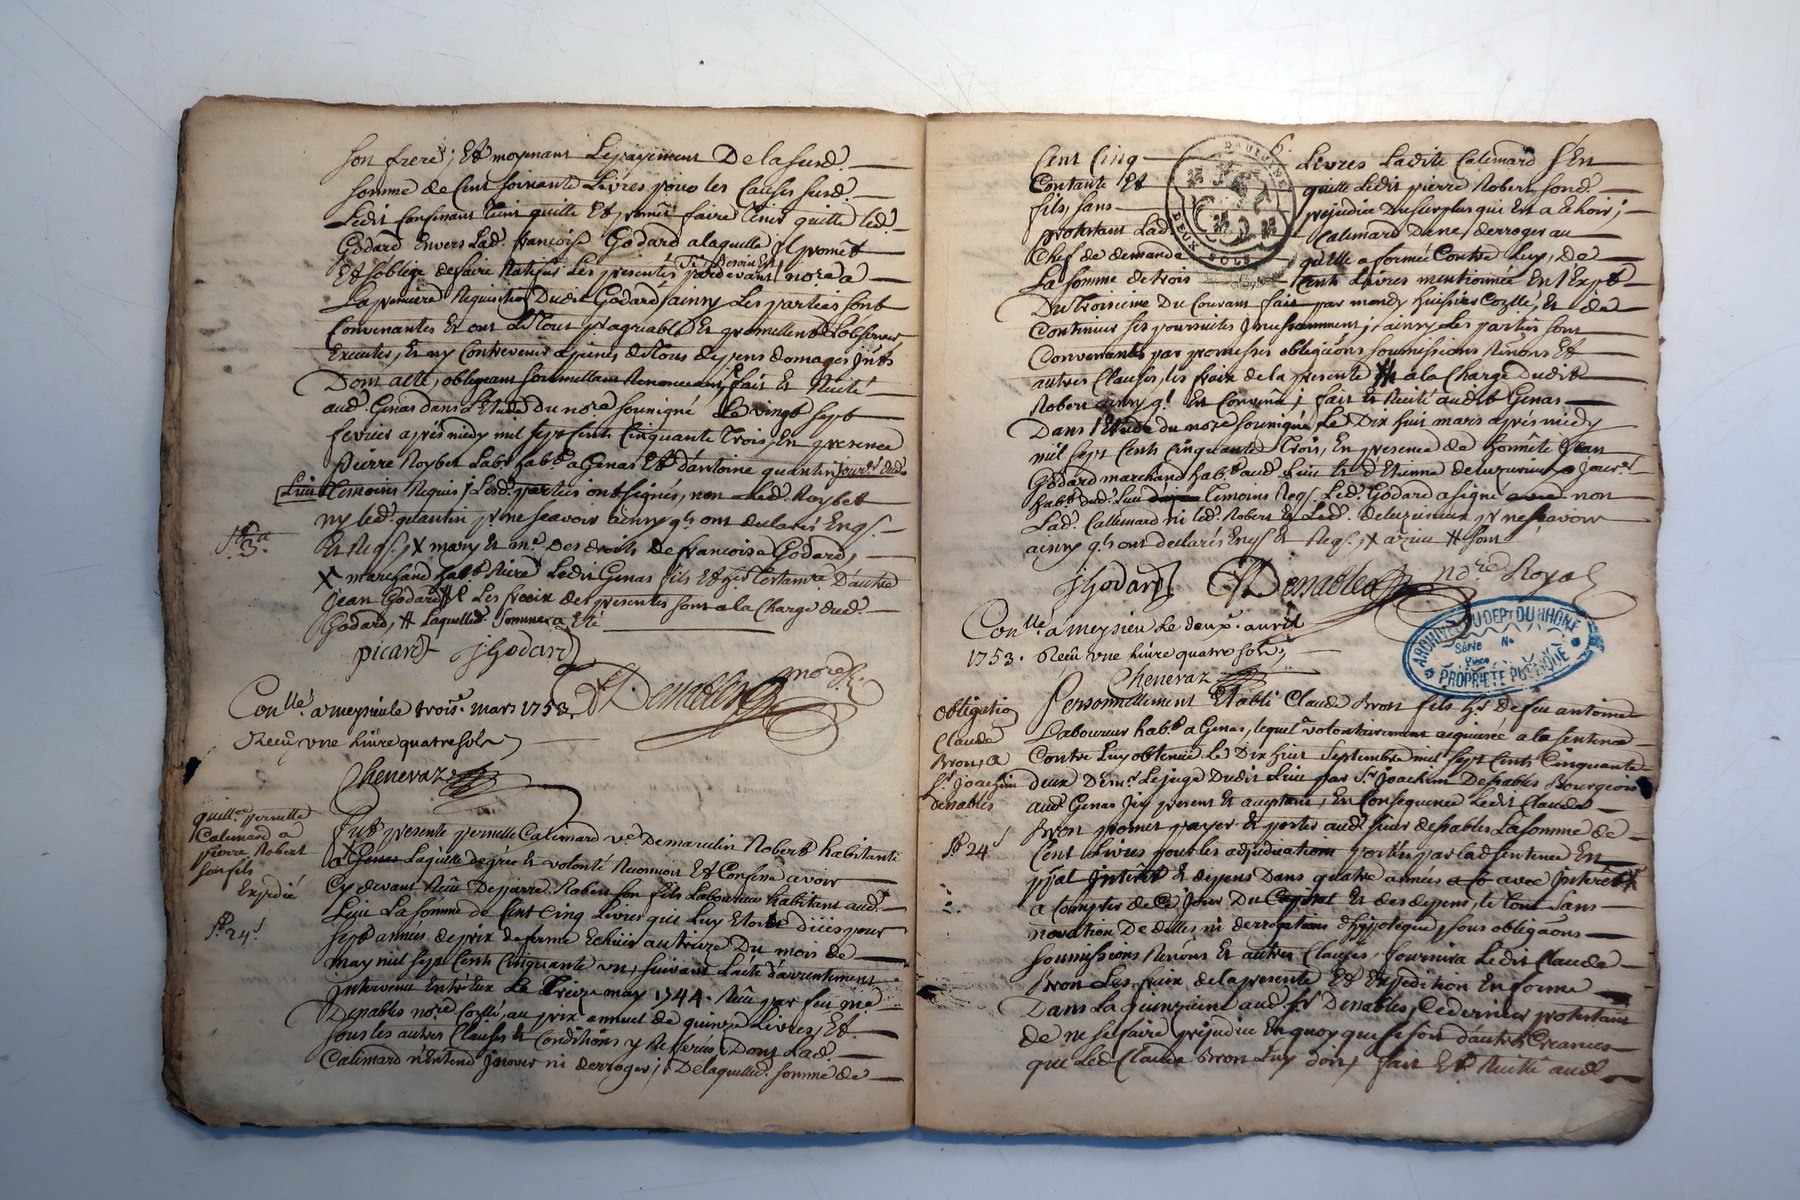 son frere, Et moyenant Le payement De la susd.
somme de Cent soixante Livres pour les Causes susd.
Ledit Confesant tient quitte Et promet faire tenir quitte led.
Godard Envers Lad. françoise Godard a laquelle Il promet
Et s'oblige de faire Ratifier Les presentes si Besoin Est pardevant nore a
La premiere Requisition Dudit Godard, ainsy Les parties sont
Convenantes Et ont Le tout pr agreable Et promettent L'observer
Executer, Et ny Contrevenir a peines de tous depens domages Ints
Dont acte, obligeant soumettant Renonceant, fait Et Recité
aud. Genas dans L'Etude Du nore sousigné Le vingt sept
fevrier après midy mil sept Cents Cinquante Trois, En presence
pierre Roybet Labr habt a Genas Et d'antoine quantin Jourr dud.
Lieu Temoins Requis, Lesd. parties ont signés, non Led. Roybet
ny led. quantin pr ne sçavoir ainsy qls ont declarés Enqs.
Et Reqs. X mary Et me Des droits de francoise Godard,
X marchand habt Riere Ledit Genas fils Et her Testamre D'autre
Jean Godard # Les fraix des presentes sont a la Charge dud.
Godard, # Laquelle somme a Eté
picard JGodard
Desnables nore R.
Conllé a meysieu le trois. mars 1753.
Reçu une Livre quatre sols
Chenevaz
quittce pernette
Calimard a
pierre Robert
son fils
Expedié
24s
Fut presente pernette Calimard ve De marcelin Robert habitante
a Genas Laquelle de gré Et volonté Reconnoit Et Confesse avoir
Cy devant Reçu De pierre Robert son fils Laboureur habitant aud.
Lieu La somme de Cent Cinq Livres que Luy Etoient Dües pour
sept années de prix de ferme Echües au treize Du mois de
may mil sept Cents Cinquante un, suivant L'acte d'arrentement
Intervenu Entr'Eux Le Treize may 1744. Reçu par feu me
Desnables nore Coyllé, au prix annuel de quinze Livres, Et
sous les autres Clauses Et Conditions y Referées, Dont Lad.
Calimard n'Entend Innover ni derroger, De laquelle somme de
6.
Cent Cinq Livres Ladite Calimard s'En
Contante Et quitte Ledit pierre Robert sond.
fils, sans prejudice du surplus qui Est a Echoir,
protestant Lad. Calimard De ne derroger au
Chef de demande qu'Elle a formée Contre Luy, de
La somme de trois Cents Livres mentionnée En l'Expt
Du Troisieme Du Courant fait par mondy huissier Coyllé, Et de
Continuer ses poursuites Incessamment, ainsy Les parties sont
Convenantes par promesses obligaõns soumissions Renõns Et
autres Clauses, les fraix de la presente # a la Charge dudit
Robert ainsy ql Est Convenu, fait Et Recité audit Genas
Dans L'Etude du nore sousigné Le Dix huit mars après midy
mil sept Cents Cinquante Trois, En presence de honnête Jean
Godard marchand habt aud. Lieu Et d'Etienne deluzurieux Jourr
habt dud. Lieu Temoins Reqs. Led. Godard a signé non
Lad. Callimard ni led. Robert Et Led. deluzurieux pr ne sçavoir
ainsy qls ont declarés Enqs Et Reqs. X # sont
JGodard Desnables nore Royal
Conllé a meysieu Le deux. avril
1753. Reçu une Livre quatre sols,
Chenevaz
DAUPHINÉ
DEUX SOLS
ARCHIVES DU DEPT DU RHÔNE
Série No
Pièce
PROPRIÉTÉ PUBLIQUE
obligatio
Claude
Bron, a
sr Joachim
desnables
24s
Personnellement Etabli Claude Bron fils hr de feu antoine
Laboureur habt a Genas, lequel volontairement acquiescé a la sentence
Contre Luy obtenue Le Dix huit Septembre mil sept Cents Cinquante
deux De mr Le juge Dudit Lieu par sr Joachim Desnables Bourgeois
aud. Genas Icy present Et acceptant, En Consequence Ledit Claude
Bron promet payer Et porter aud. sieur desnables La somme de
Cent Livres pour les adjudications portées par lad. sentence En
ppal Interêt Et depens Dans quatre années avec Interêt
a Compter de Ce Jour Du Capital Et des depens, le tout sans
novation De dettes ni derrogations d'hypoteque, sous obligaõns
soumissions Renõns Et autres Clauses, fournira Ledit Claude
Bron Les fraix de la presente Et Expedition En forme
Dans La quinzaine aud. sr Desnables, Ce dernier protestant
de ne se faire prejudice En quoy que se soit d'autres Creances
que Led. Claude Bron Luy doit, fait Et Recité aud.